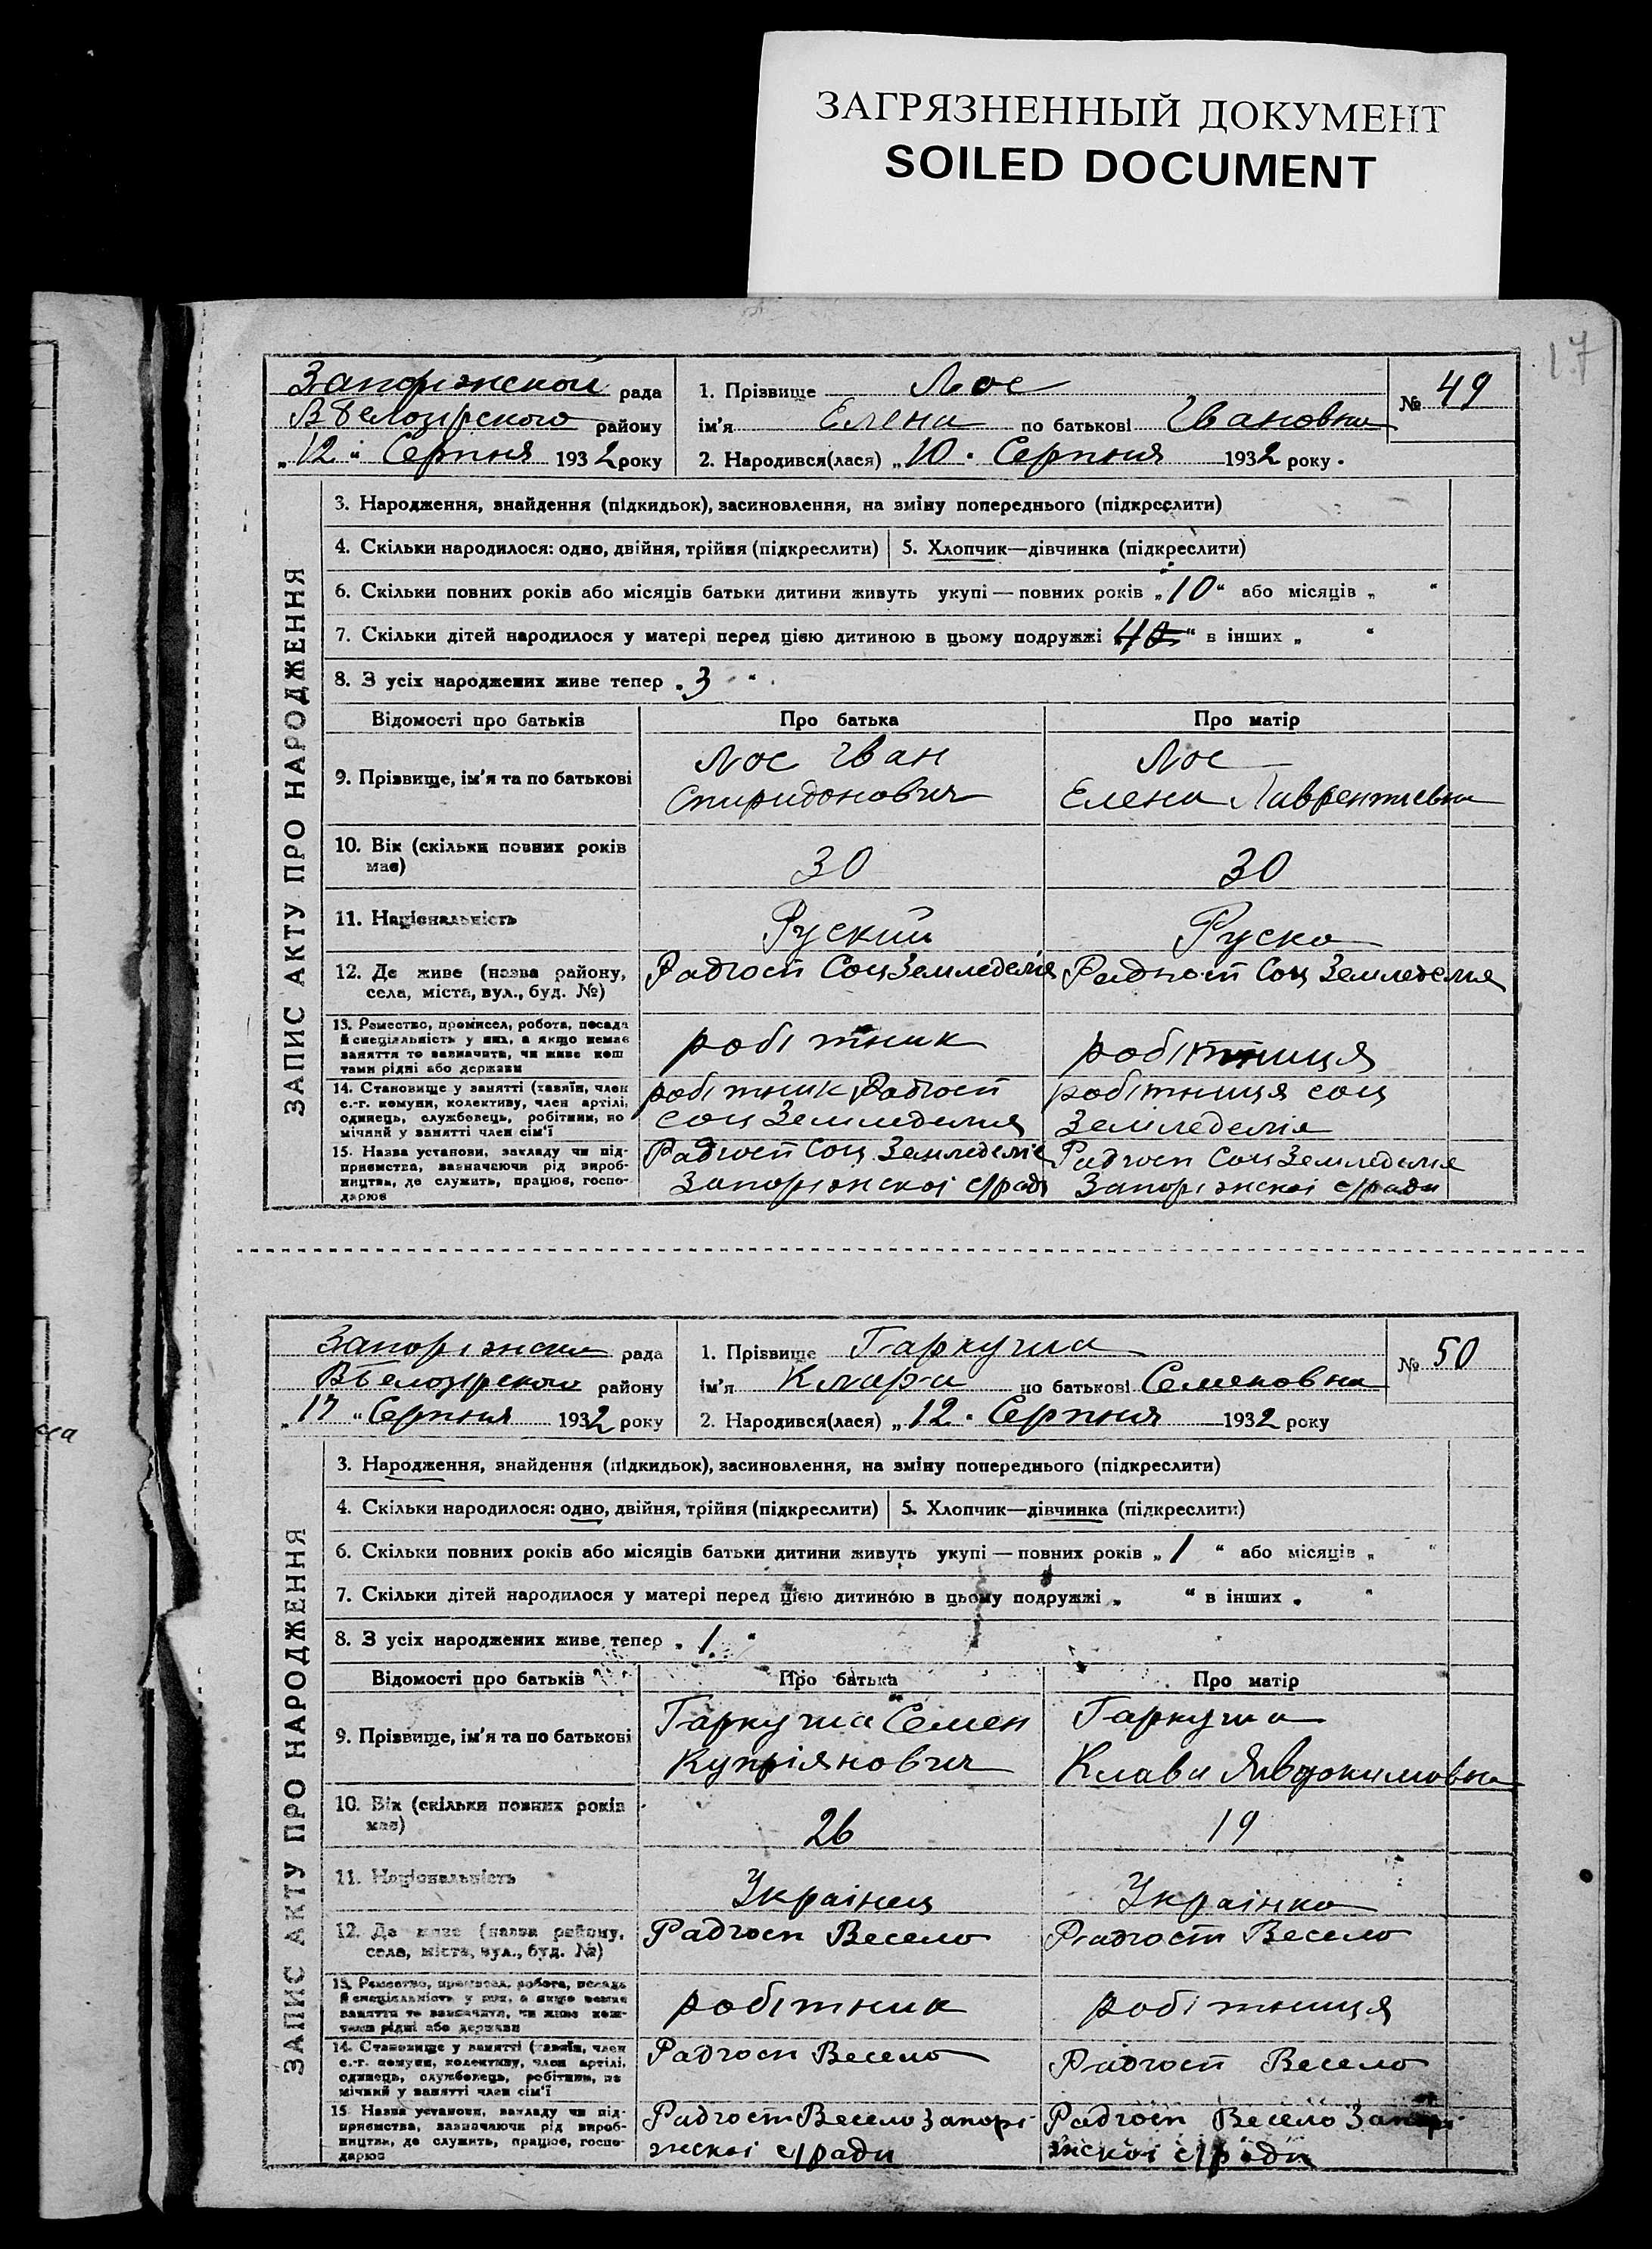 ЗАГРЯЗНЕННЫЙ ДОКУМЕНТ
SOILED DOCUMENT
17
Запоріжской рада
ВБелозірского району
„12" Серпня 1932 року
1. Прізвище Лос
ім'я Елена по батькові Івановна
2. Народився(лася) „10. Серпня 1932 року.
№ 49
ЗАПИС АКТУ ПРО НАРОДЖЕННЯ
3. Народження, знайдення (підкидьок), засиновлення, на зміну попереднього (підкреслити)
4. Скільки народилося: одно, двійня, трійня (підкреслити) 5. Хлопчик—дівчинка (підкреслити)
6. Скільки повних років або місяців батьки дитини живуть укупі — повних років „10" або місяців „ "
7. Скільки дітей народилося у матері перед цією дитиною в цьому подружжі „4 " в інших „ "
8. З усіх народжених живе тепер „3 "
Відомості про батьків Про батька Про матір
9. Прізвище, ім'я та по батькові
Лос Іван
Спиридонович
Лос
Елена Лаврентиевна
10. Вік (скільки повних років
має)
30
30
11. Національність
Руский
Руска
12. Де живе (назва району,
села, міста, вул., буд. №)
Радгосп Соц Земледелія
Радгосп Соц Земледелия
13. Ремество, промисел, робота, посада
й спеціяльність у них, а якщо немає
заняття то зазначити, чи живе кош
тами рідні або держави
робітник
робітниця
14. Становище у занятті (хазяїн, член
с.-г. комуни, колективу, член артілі,
одинець, службовець, робітник, по
мічний у занятті член сім'ї
робітник Радгосп
соц Земледелия
робітниця соц
Земледелія
15. Назва установи, закладу чи під-
приємства, зазначаючи рід вироб-
ництва, де служить, працює, госпо-
дарює
Радгосп Соц Земледеліе
Запоріжскоі с/ради
Радгосп Соц Земледелие
Запоріжскоі с/ради
Запоріжска рада
ВБелозірского району
„17 " Серпня 1932 року
1. Прізвище Гаркуша
ім'я Клара по батькові Семеновна
2. Народився(лася) „12. Серпня 1932 року
№ 50
ЗАПИС АКТУ ПРО НАРОДЖЕННЯ
3. Народження, знайдення (підкидьок), засиновлення, на зміну попереднього (підкреслити)
4. Скільки народилося: одно, двійня, трійня (підкреслити) 5. Хлопчик—дівчинка (підкреслити)
6. Скільки повних років або місяців батьки дитини живуть укупі — повних років „1 " або місяців „ "
7. Скільки дітей народилося у матері перед цією дитиною в цьому подружжі „ " в інших „ "
8. З усіх народжених живе тепер „1. "
Відомості про батьків Про батька Про матір
9. Прізвище, ім'я та по батькові
Гаркуша Семен
Купріянович
Гаркуша
Клава Явдокимовна
10. Вік (скільки повних років
має)
26
19
11. Національність
Украінец
Украінка
12. Де живе (назва району,
села, міста, вул., буд. №)
Радгосп Весело
Радгосп Весело
13. Ремество, промисел, робота, посада
й спеціяльність у них, а якщо немає
заняття то зазначити, чи живе кош-
тами рідні або держави
робітник
робітниця
14. Становище у занятті (хазяїн, член
с.-г. комуни, колективу, член артілі,
одинець, службовець, робітник, по
мічний у занятті член сім'ї
Радгосп Весело
Радгосп Весело
15. Назва установи, закладу чи під-
приємства, зазначаючи рід вироб-
ництва, де служить, працює, госпо-
дарює
Радгосп Весело Запорі-
жскоі с/ради
Радгосп Весело Запорі-
жскоі с/ради